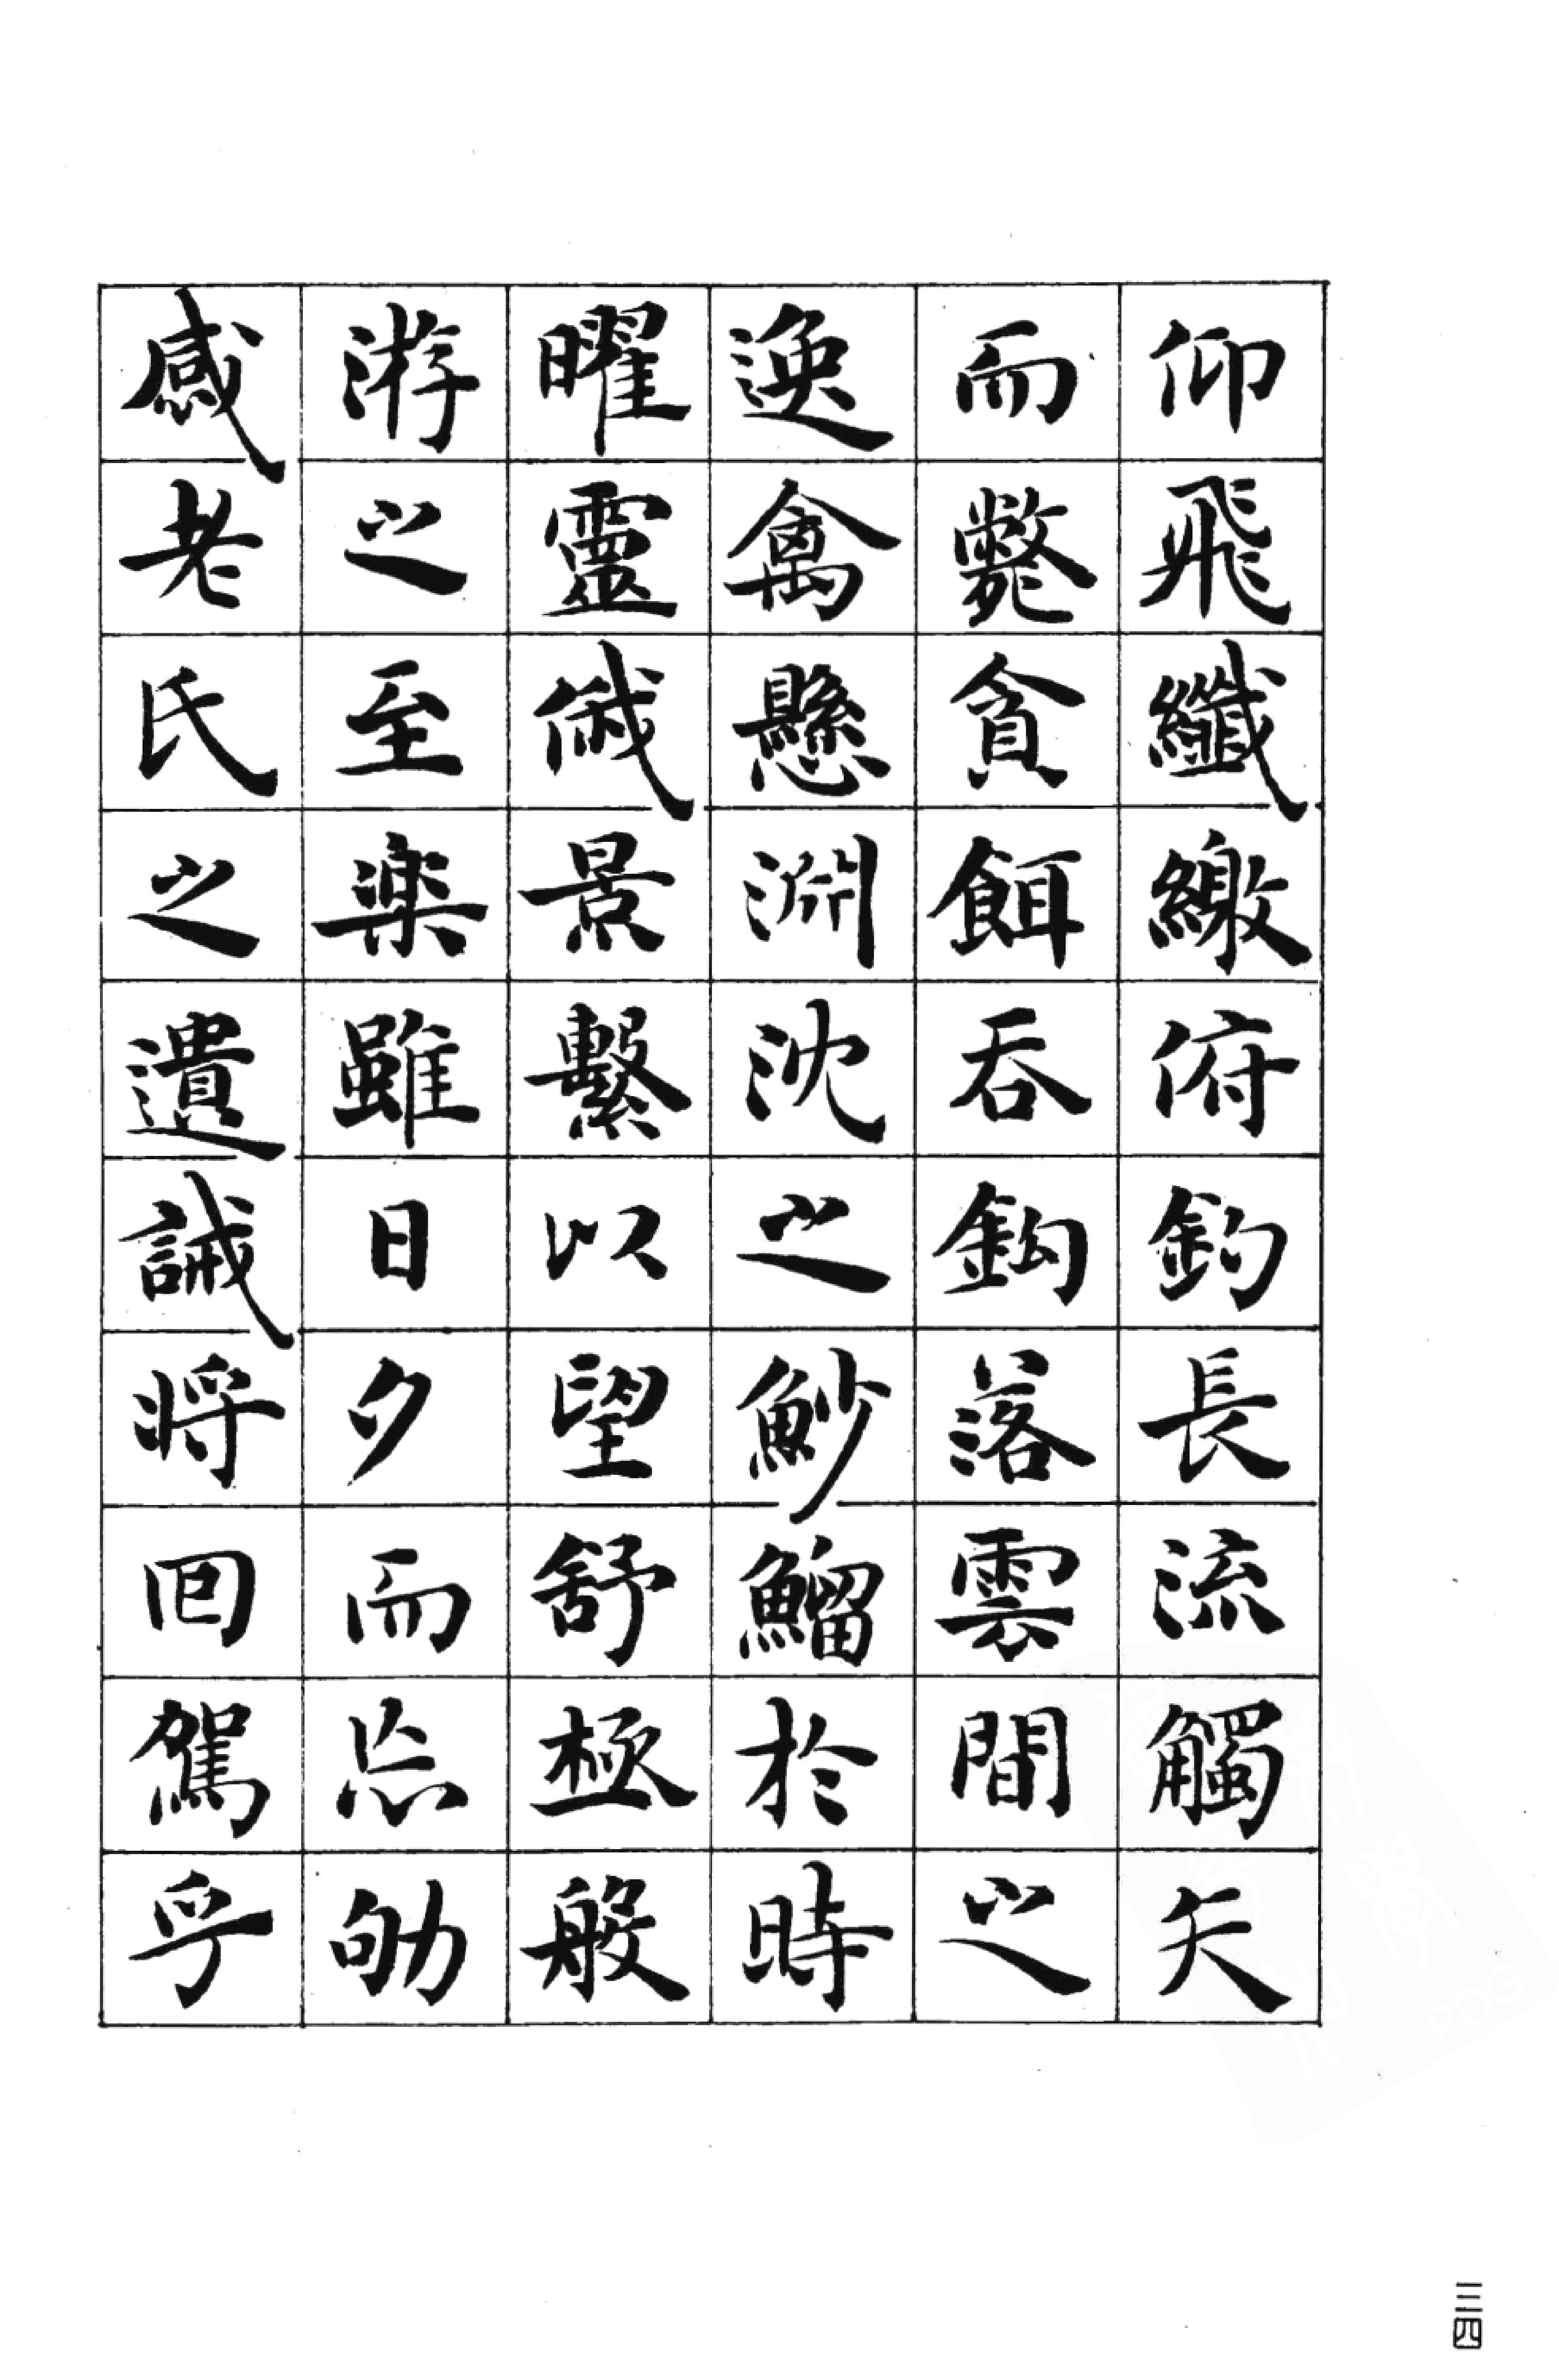 仰飛纖繳俯釣長流觸矢
而斃貪餌吞鈎落雲間之
逸禽懸淵沈之魦鰡於時
曜靈俄景繫以望舒極般
游之至樂雖日夕而忘劬
感老氏之遺誡将回駕乎
三四